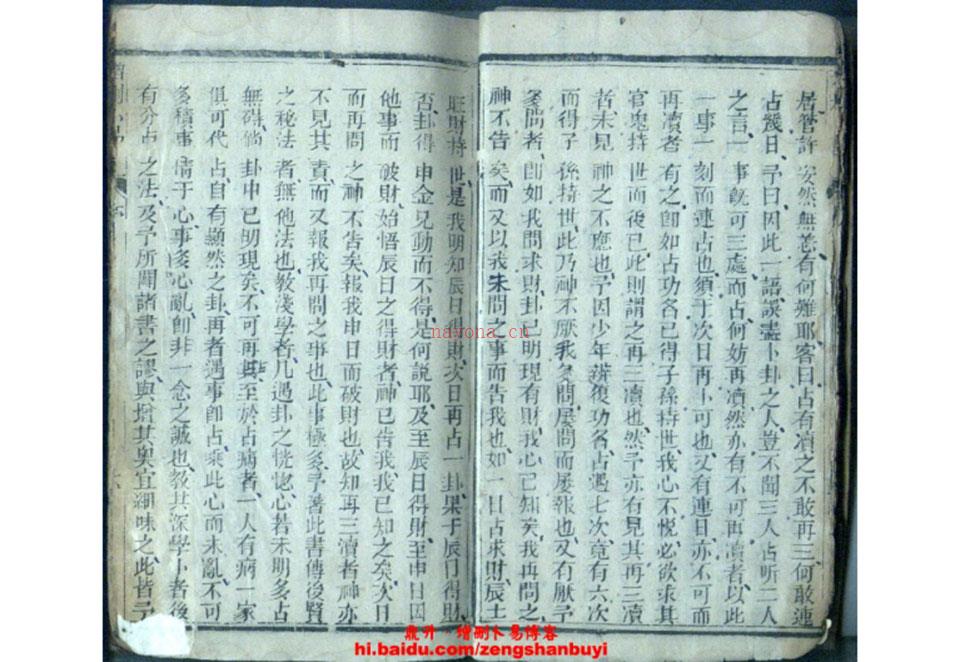 居皆許安然無恙有何難耶客曰占有凟之不敢再三何敢連
占幾日予曰因此一語誤盡卜卦之人豈不聞三人占听二人
之言一事既可三處而占何妨再凟然亦有不可再凟者以此
一事一刻而連占也須于次日再卜可也又有連日亦不可而
再凟者有之卽如占功名已得子孫持世我心不悦必欲求其
官鬼持世而後已此則謂之再三凟也然予亦有見其再三凟
者未見神之不應也予因少年辨復功名占過七次竟有六次
而得子孫持世此乃神不厭我多問屢問而屢報也又有厭予
多問者卽如我問求財卦已明現有財我心已知矣我再問之
神不告矣而又以我未問之事而告我也如一日占求財辰土
旺財持世是我明知辰日得財次日再占一卦果于辰日得財
否卦得申金兄動而不得是何説耶及至辰日得財至申日因
他事而破財始悟辰日之得財者神已告我我已知之矣次日
而再問之神不告矣報我申日而破財也故知再三凟者神亦
不見其責而又報我再問之事也此事極多予著此書傳後賢
之秘法者無他法也教淺學者凡遇卦之恍惚心若未明多占
無碍倘卦中已明現矣不可再凟至於占病者一人有病一家
俱可代占自有顯然之卦再者遇事卽占乘此心而未亂不可
多積事情于心事多心亂卽非一念之誠也教其深學卜者後
有分占之法及予所闢諸書之謬與增其奥宜細味之此皆予
navona.cn
鼎升·增刪卜易博客
hi.baidu.com/zengshanbuyi